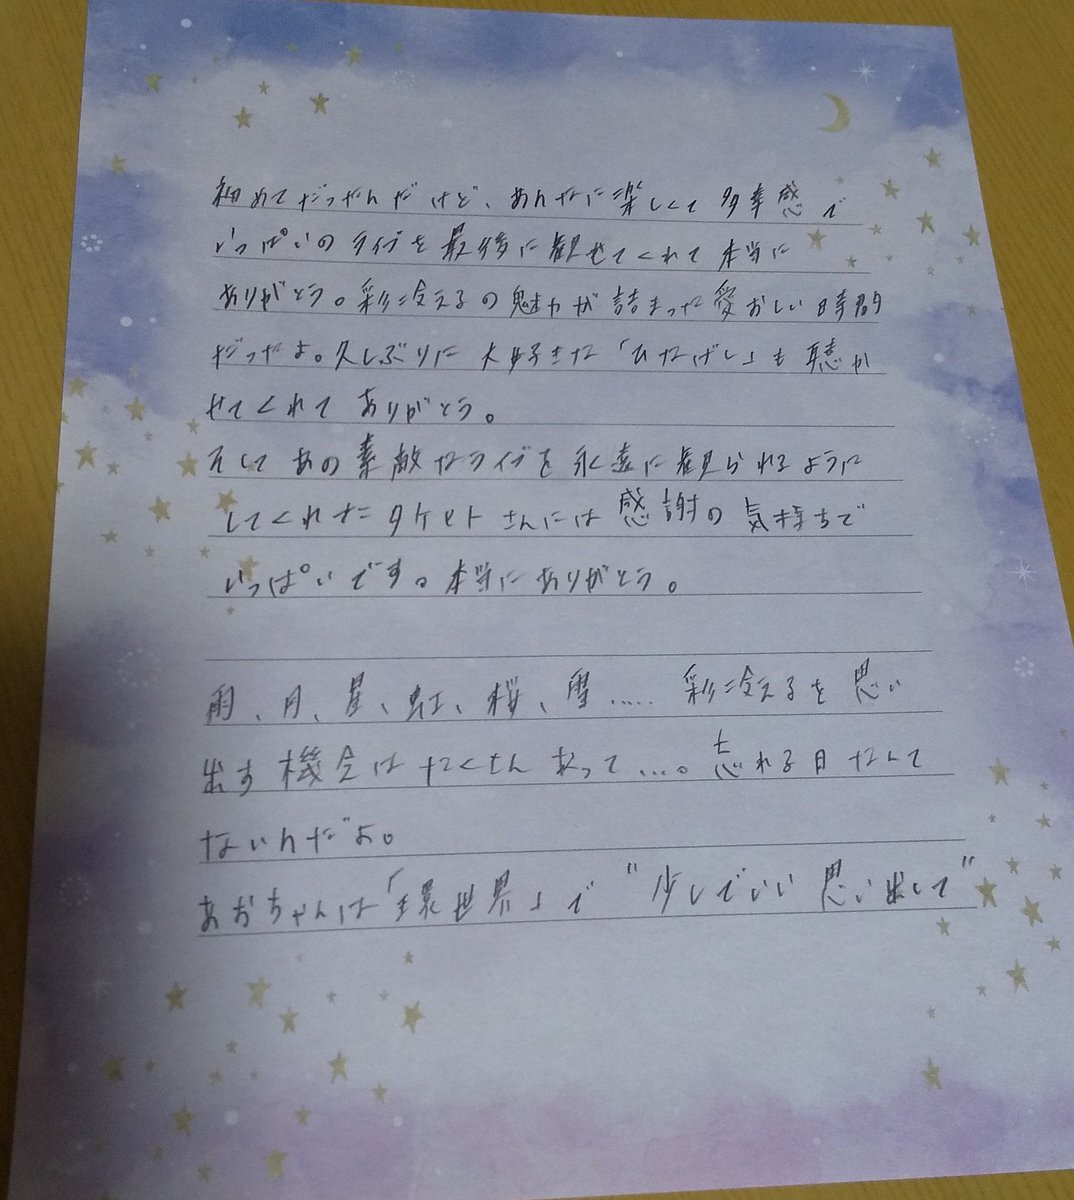 初めてだったんだけど、あんなに楽しくて多幸感で
いっぱいのライブを最後に観せてくれて本当に
ありがとう。彩冷えるの魅力が詰まった愛おしい時間
だったよ。久しぶりに大好きな「ひなげし」も聴か
せてくれてありがとう。
そしてあの素敵なライブを永遠に観られるように
してくれたタケヒトさんには感謝の気持ちで
いっぱいです。本当にありがとう。
雨、月、星、虹、桜、雪..... 彩冷えるを思い
出す機会はたくさんあって....。忘れる日なんて
ないんだよ。
あおちゃんは「環世界」で"少しでいい 思い出して"